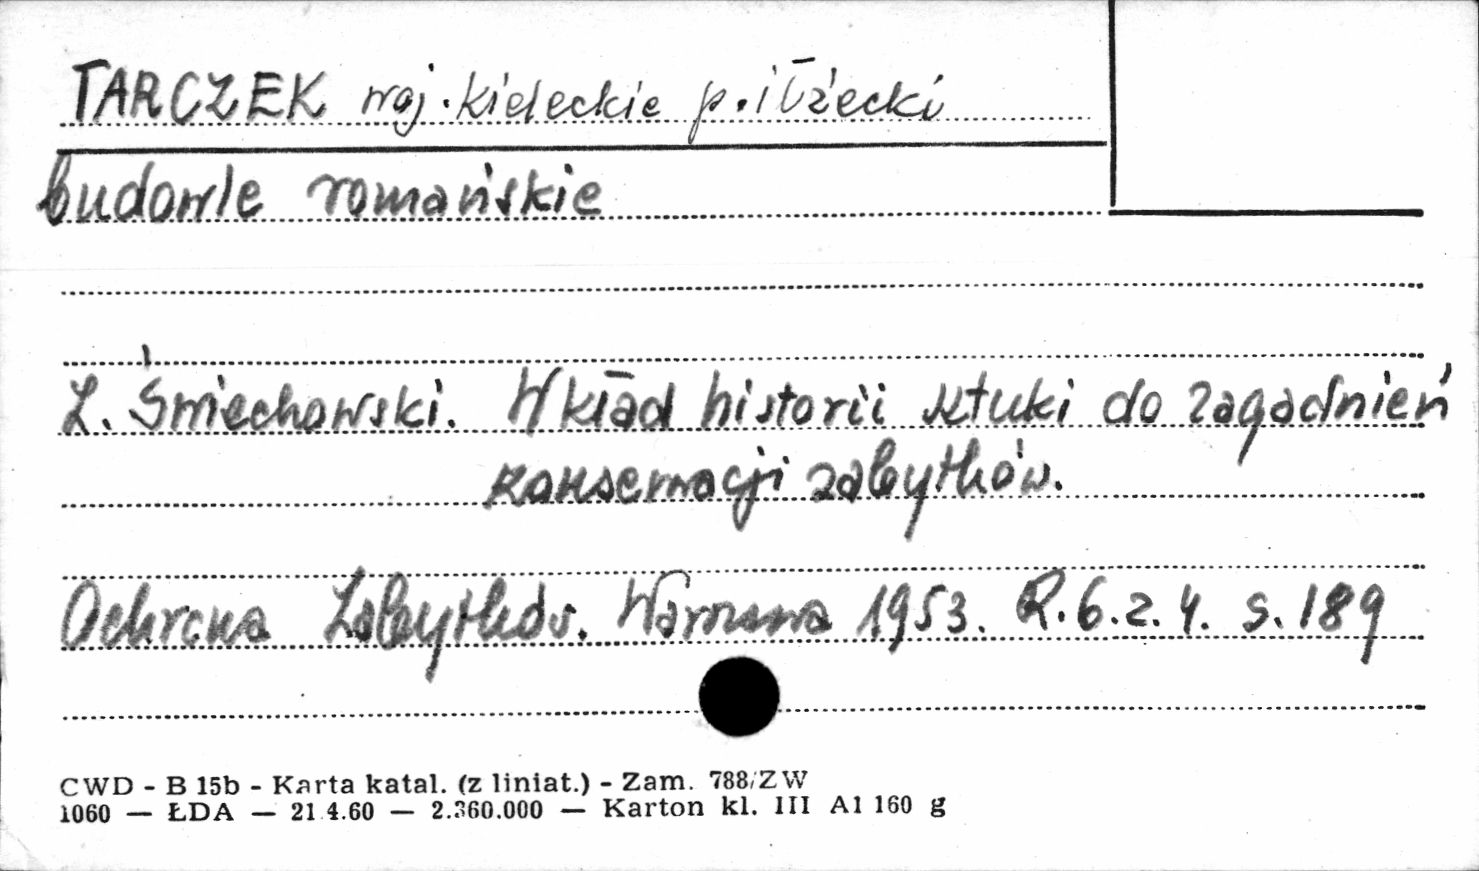 TARCZEK woj. kieleckie p. iłżecki
budowle romańskie
Z. Śmiechowski. Wkład historii sztuki do zagadnień
konserwacji zabytków.
Ochrona Zabytków. Warszawa 1953. R.6. z. 4. s. 189
CWD - B 15b - Karta katal. (z liniat.) - Zam. 788/ZW
1060 — ŁDA — 21.4.60 — 2.360.000 — Karton kl. III A1 160 g